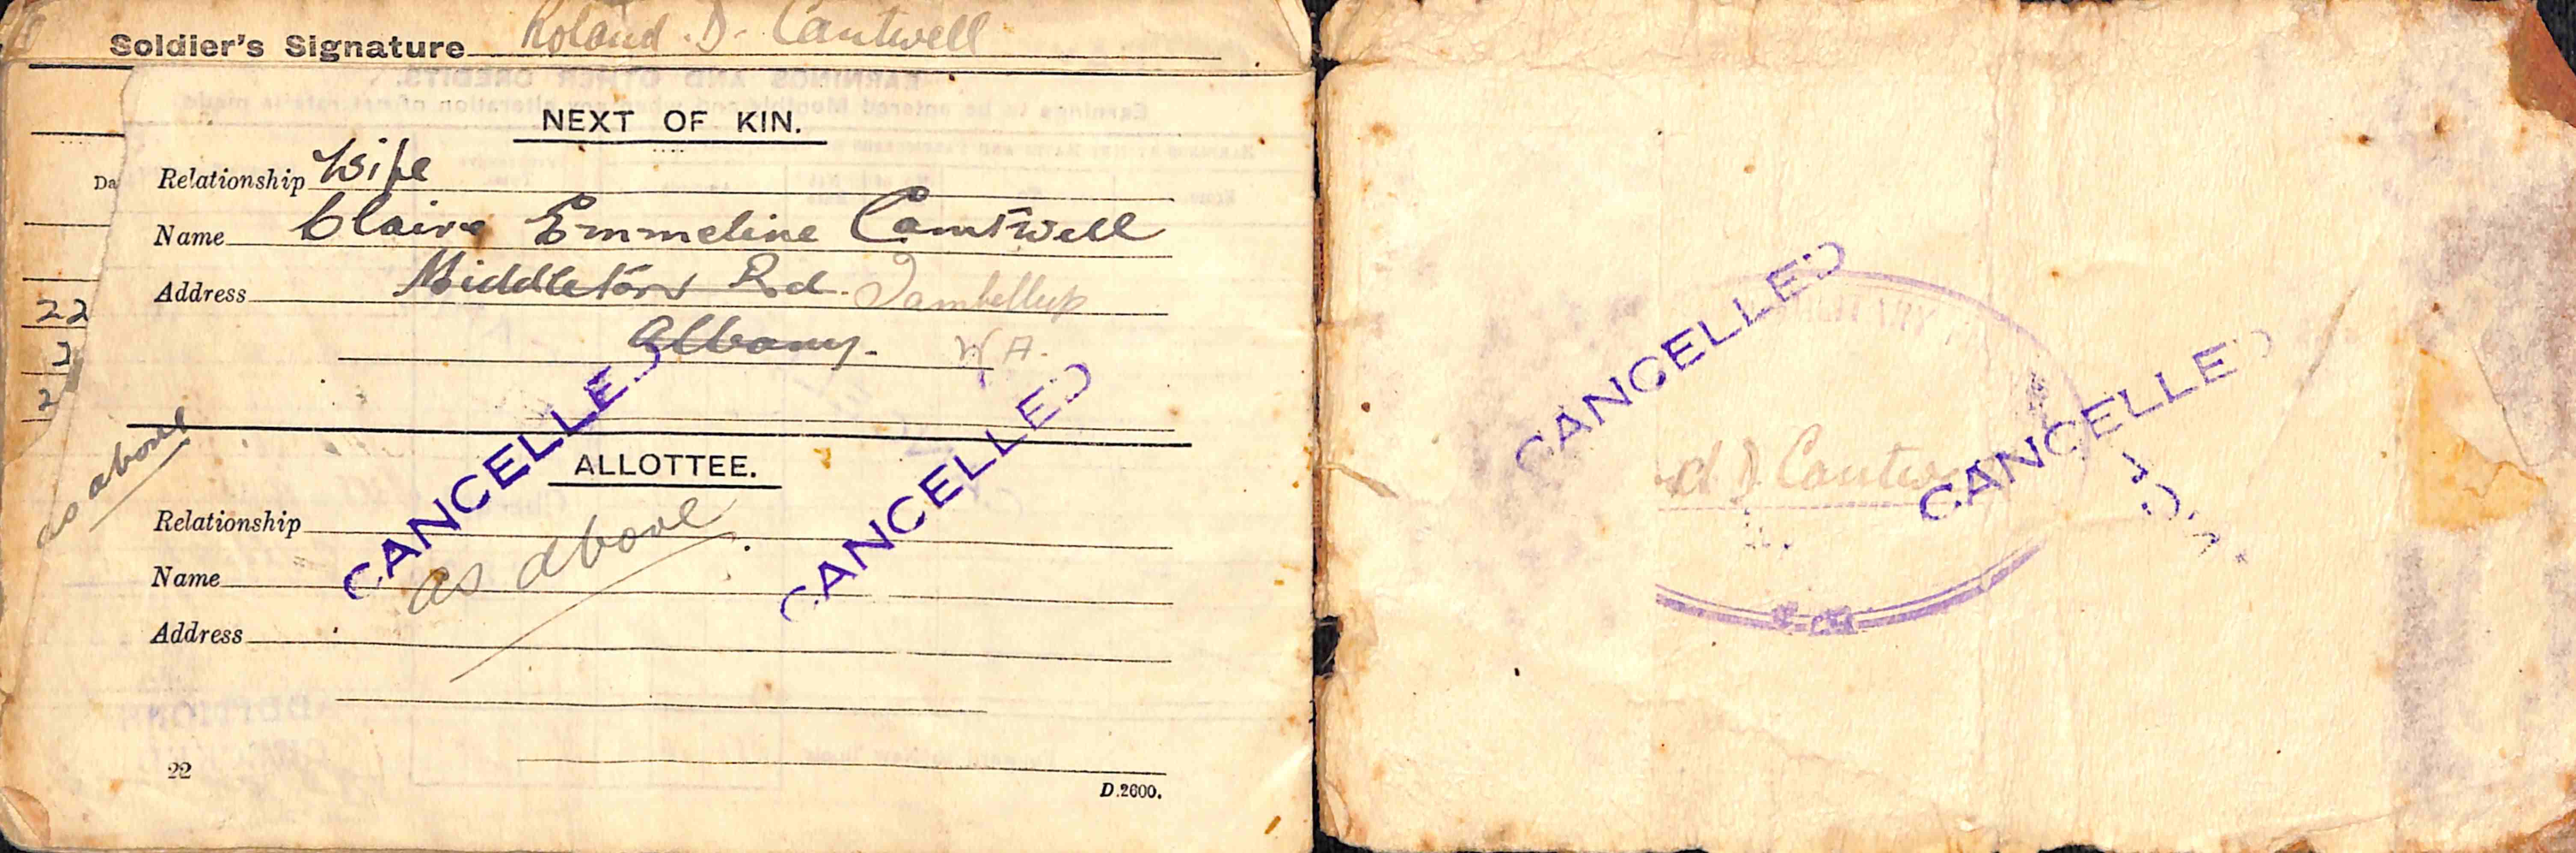 Soldier's Signature Roland . D. Cantwell
NEXT OF KIN.
Da
Relationship Wife
Name Claire Emmeline Cantwell
Address Middleton Rd. Tambellup
22
Albany. W A.
2
2
as above
ALLOTTEE.
Relationship
as above
Name
Address
22
D.2600.
CANCELLED
CANCELLED
CANCELLED
CANCELLED
d D Cantw